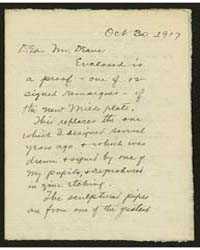 Oct 30 1917
Dear Mr. Deane
Enclosed is
a proof - one of 12
signed remarques - of
the new Mills plate.
This replaces the one
which I designed several
years ago, & which was
drawn & signed by one of
my pupils, & reproduced
in your etching.
The sculptured pipes
are from one of the